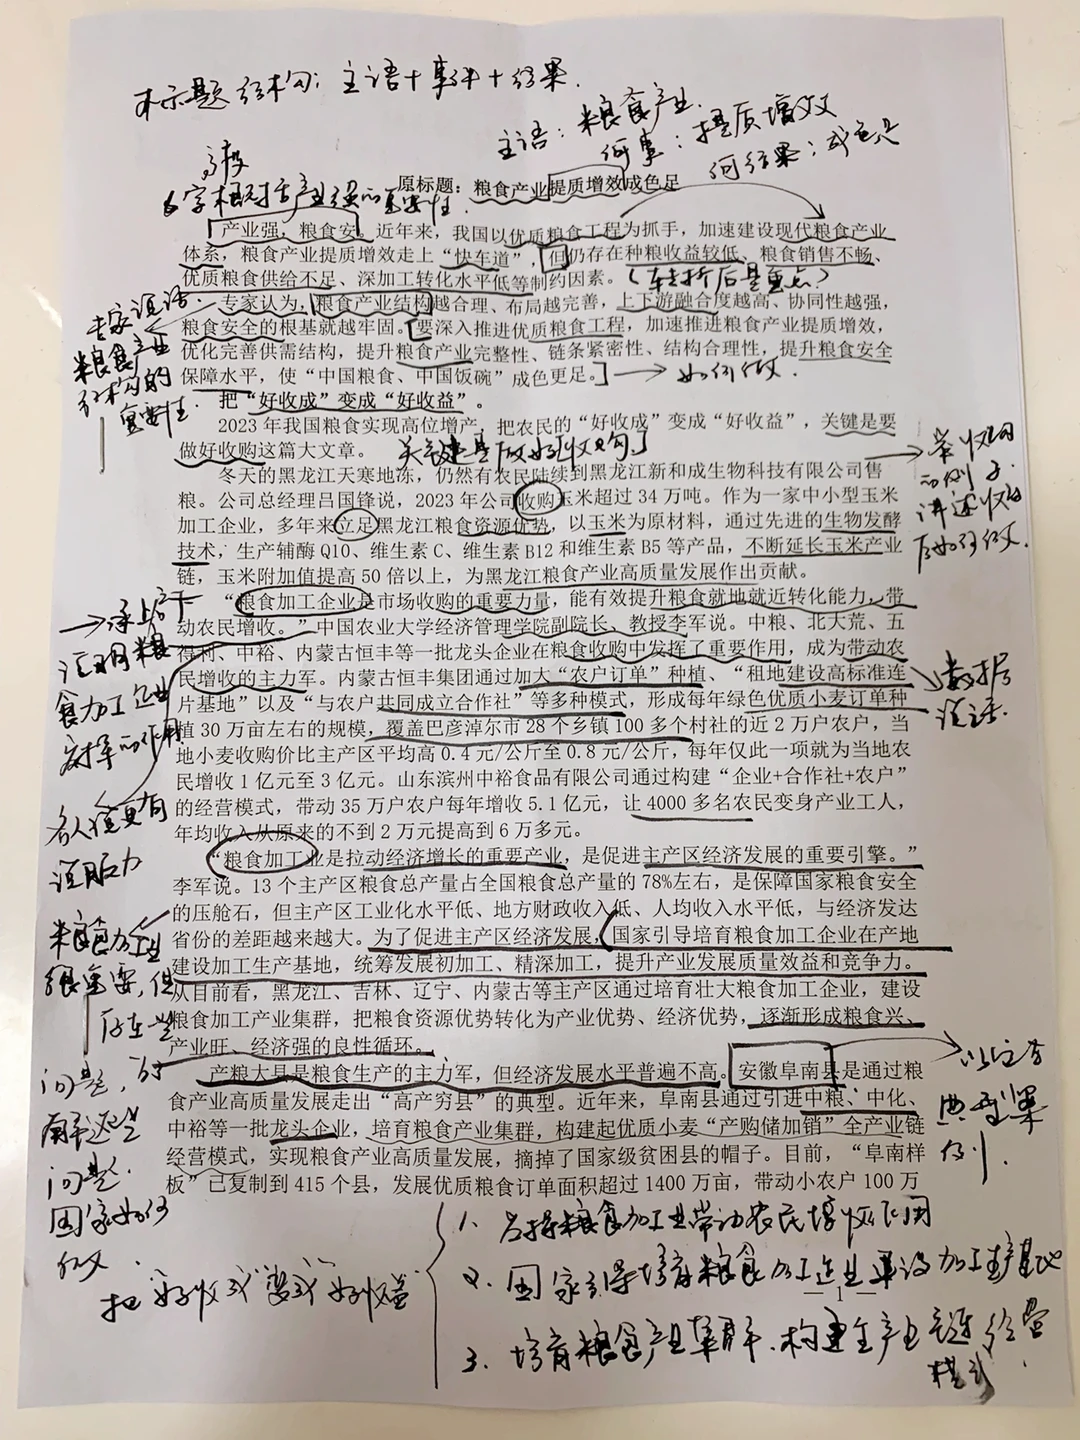 标题结构：主语+事件+结果.
主语：粮食产业.
何事：提质增效
何结果：成色足
6字相对话产业强的重要性.
原标题：粮食产业提质增效成色足
产业强，粮食安。近年来，我国以优质粮食工程为抓手，加速建设现代粮食产业
体系，粮食产业提质增效走上“快车道”，但仍存在种粮收益较低、粮食销售不畅、
优质粮食供给不足、深加工转化水平低等制约因素。
（转折后是重点）
专家认为，粮食产业结构越合理、布局越完善，上下游融合度越高、协同性越强，
粮食安全的根基就越牢固。要深入推进优质粮食工程，加速推进粮食产业提质增效，
优化完善供需结构，提升粮食产业完整性、链条紧密性、结构合理性，提升粮食安全
保障水平，使“中国粮食、中国饭碗”成色更足。
]→如何做.
专家说话.
粮食产业
结构的
重要性.
把“好收成”变成“好收益”。
2023 年我国粮食实现高位增产，把农民的“好收成”变成“好收益”，关键是要
做好收购这篇大文章。
关键是做好[收购]
冬天的黑龙江天寒地冻，仍然有农民陆续到黑龙江新和成生物科技有限公司售
粮。公司总经理吕国锋说，2023 年公司收购玉米超过 34 万吨。作为一家中小型玉米
加工企业，多年来立足黑龙江粮食资源优势，以玉米为原材料，通过先进的生物发酵
技术，生产辅酶 Q10、维生素 C、维生素 B12 和维生素 B5 等产品，不断延长玉米产业
链，玉米附加值提高 50 倍以上，为黑龙江粮食产业高质量发展作出贡献。
举收购
的例子.
讲述收购
后如何做.
“粮食加工企业是市场收购的重要力量，能有效提升粮食就地就近转化能力，带
动农民增收。”中国农业大学经济管理学院副院长、教授李军说。中粮、北大荒、五
得利、中裕、内蒙古恒丰等一批龙头企业在粮食收购中发挥了重要作用，成为带动农
民增收的主力军。内蒙古恒丰集团通过加大“农户订单”种植、“租地建设高标准连
片基地”以及“与农户共同成立合作社”等多种模式，形成每年绿色优质小麦订单种
植 30 万亩左右的规模，覆盖巴彦淖尔市 28 个乡镇 100 多个村社的近 2 万户农户，当
地小麦收购价比主产区平均高 0.4 元/公斤至 0.8 元/公斤，每年仅此一项就为当地农
民增收 1 亿元至 3 亿元。山东滨州中裕食品有限公司通过构建“企业+合作社+农户”
的经营模式，带动 35 万户农户每年增收 5.1 亿元，让 4000 多名农民变身产业工人，
年均收入从原来的不到 2 万元提高到 6 万多元。
→承上启下
证明粮
食加工企业
发挥的作用
名人说更有
说服力
数据
说话.
“粮食加工业是拉动经济增长的重要产业，是促进主产区经济发展的重要引擎。”
李军说。13 个主产区粮食总产量占全国粮食总产量的 78%左右，是保障国家粮食安全
的压舱石，但主产区工业化水平低、地方财政收入低、人均收入水平低，与经济发达
省份的差距越来越大。为了促进主产区经济发展，国家引导培育粮食加工企业在产地
建设加工生产基地，统筹发展初加工、精深加工，提升产业发展质量效益和竞争力。
从目前看，黑龙江、吉林、辽宁、内蒙古等主产区通过培育壮大粮食加工企业，建设
粮食加工产业集群，把粮食资源优势转化为产业优势、经济优势，逐渐形成粮食兴、
产业旺、经济强的良性循环。
粮食加工业
很重要，但
存在一些
问题，
问题.
国家如何
做.
产粮大县是粮食生产的主力军，但经济发展水平普遍不高。安徽阜南县是通过粮
食产业高质量发展走出“高产穷县”的典型。近年来，阜南县通过引进中粮、中化、
中裕等一批龙头企业，培育粮食产业集群，构建起优质小麦“产购储加销”全产业链
经营模式，实现粮食产业高质量发展，摘掉了国家级贫困县的帽子。目前，“阜南样
板”已复制到 415 个县，发展优质粮食订单面积超过 1400 万亩，带动小农户 100 万
典型案
例.
把“好收成”变成“好收益
1、发挥粮食加工业带动农民增收作用
2、国家引导培育粮食加工企业建设加工生产基地
3、培育粮食产业集群、构建全产业链经营
模式.
— 1 —